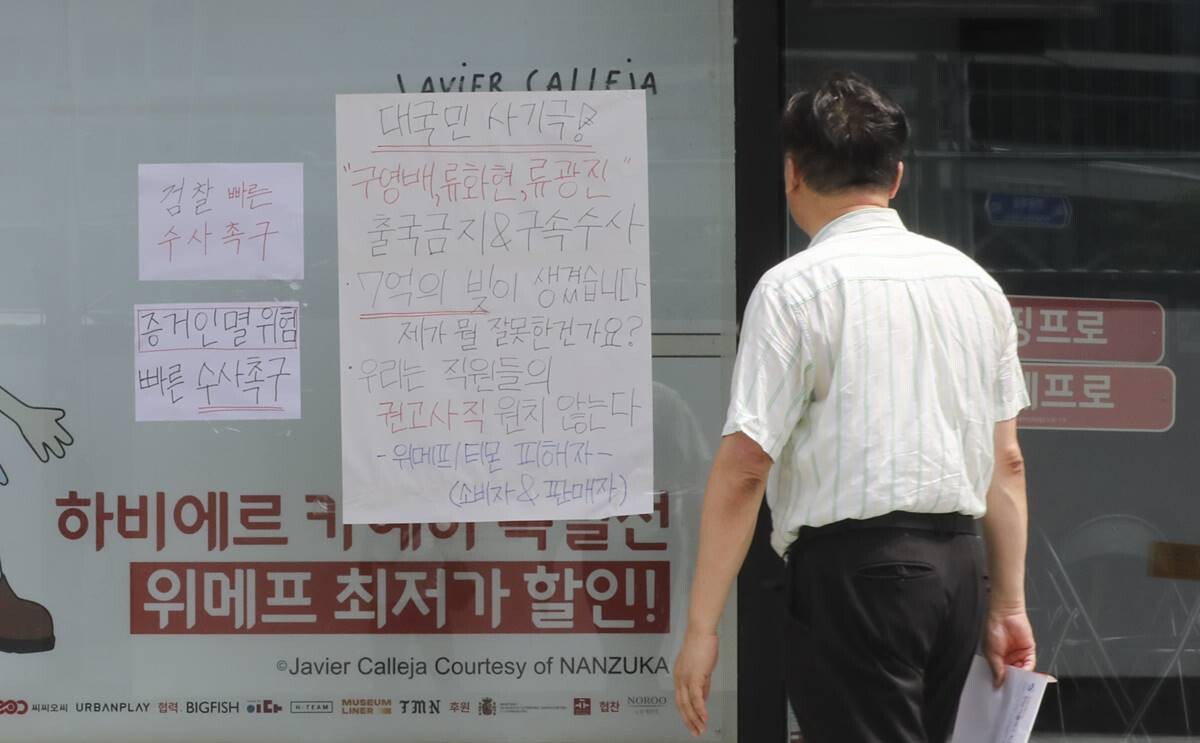 JAVIER CALLEJA
대국민 사기극!
"구영배,류화현,류광진"
출국금지&구속수사
·7억의 빚이 생겼습니다
제가 뭘 잘못한건가요?
·우리는 직원들의
권고사직 원치 않는다
-위메프/티몬 피해자-
(소비자 & 판매자)
검찰 빠른
수사 촉구
증거인멸 위험
빠른 수사촉구
하비에르
위메프 최저가 할인!
©Javier Calleja Courtesy of NANZUKA
씨씨오씨 URBANPLAY 협력 BIGFISH H-TEAM MUSEUM LINER TMN 후원 협찬 NOROO
핑프로
프로